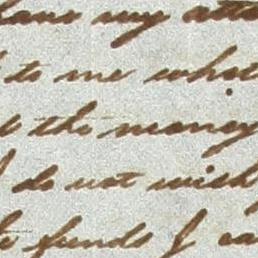 have my atte
to me what
the money
do not wish
funds I ca